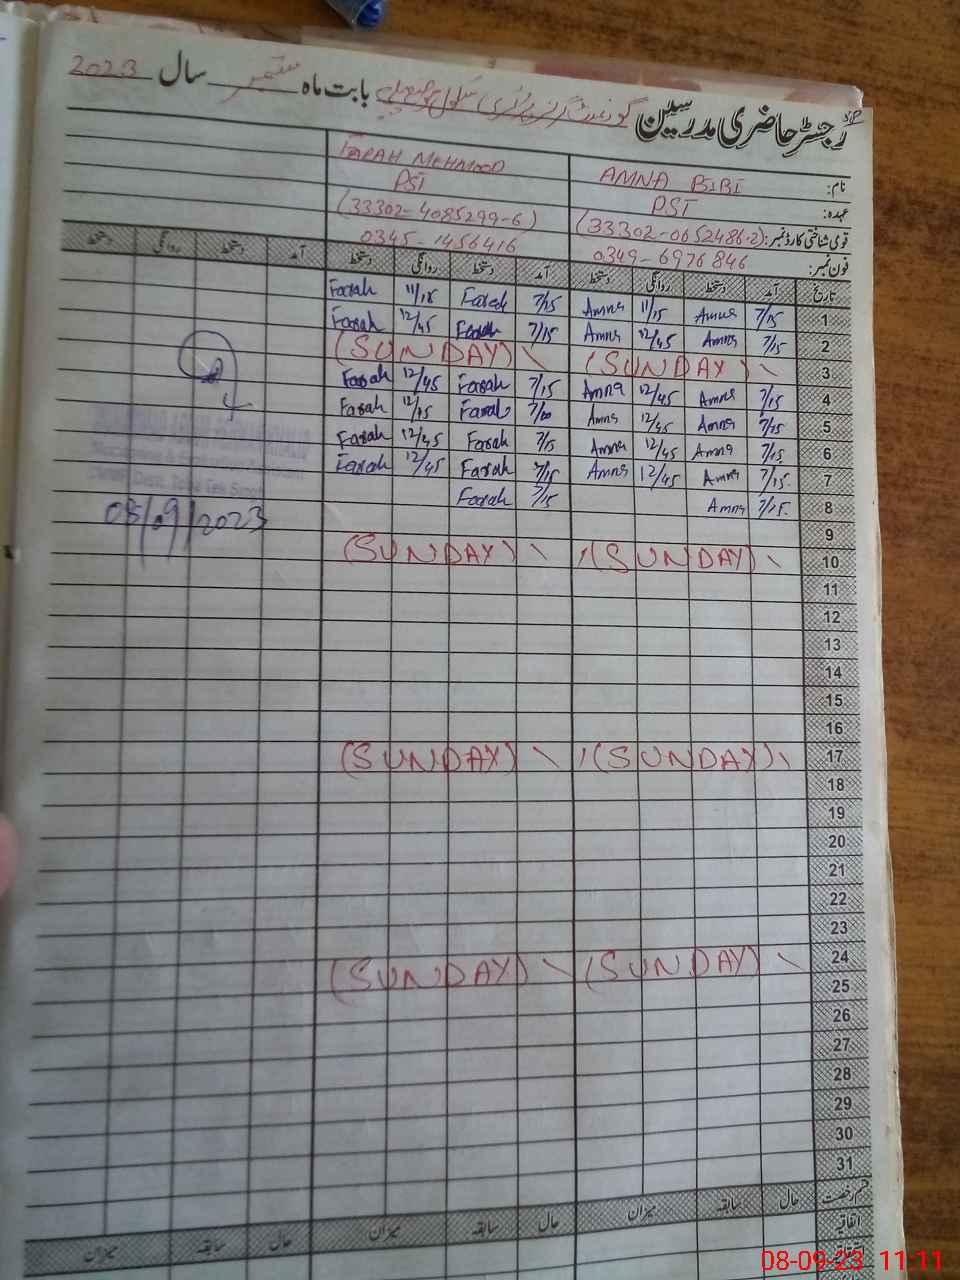 رجسٹر حاضری مدرسین گورنمنٹ گرلز پرائمری سکول بابت ماہ ستمبر سال 2023
نام: AMNA BIBI FARAH MEHMOOD
عہدہ: PST PST
قومی شناختی کارڈ نمبر: (33302-0652486-2) (33302-4085299-6)
فون نمبر: 0349-6976846 0345-1456416
تاریخ آمد دستخط روانگی دستخط آمد دستخط روانگی دستخط آمد دستخط روانگی دستخط
1 7/15 Amna 11/15 Amna 7/15 Farah 11/15 Farah
2 7/15 Amna 12/45 Amna 7/15 Farah 12/45 Farah
3 (SUNDAY) (SUNDAY)
4 7/15 Amna 12/45 Amna 7/15 Farah 12/45 Farah
5 7/15 Amna 12/45 Amna Farah 12/15 Farah
6 7/15 Amna 12/45 Amna 7/15 Farah 12/45 Farah
7 7/15 Amna 12/45 Amna 7/15 Farah 12/45 Farah
8 7/15 Amna 7/15 Farah
08/09/2023
9
10 (SUNDAY) (SUNDAY)
11
12
13
14
15
16
17 (SUNDAY) (SUNDAY)
18
19
20
21
22
23
24 (SUNDAY) (SUNDAY)
25
26
27
28
29
30
31
قسم رخصت حال سابقہ میزان حال سابقہ میزان حال سابقہ میزان
اتفاقیہ
08-09-23 11:11